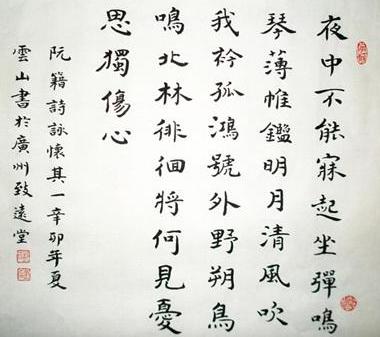 夜中不能寐起坐彈鳴
琴薄帷鑑明月清風吹
我衿孤鴻號外野朔鳥
鳴北林徘徊將何見憂
思獨傷心
阮籍詩詠懷其一辛卯年夏
雲山書於廣州致遠堂